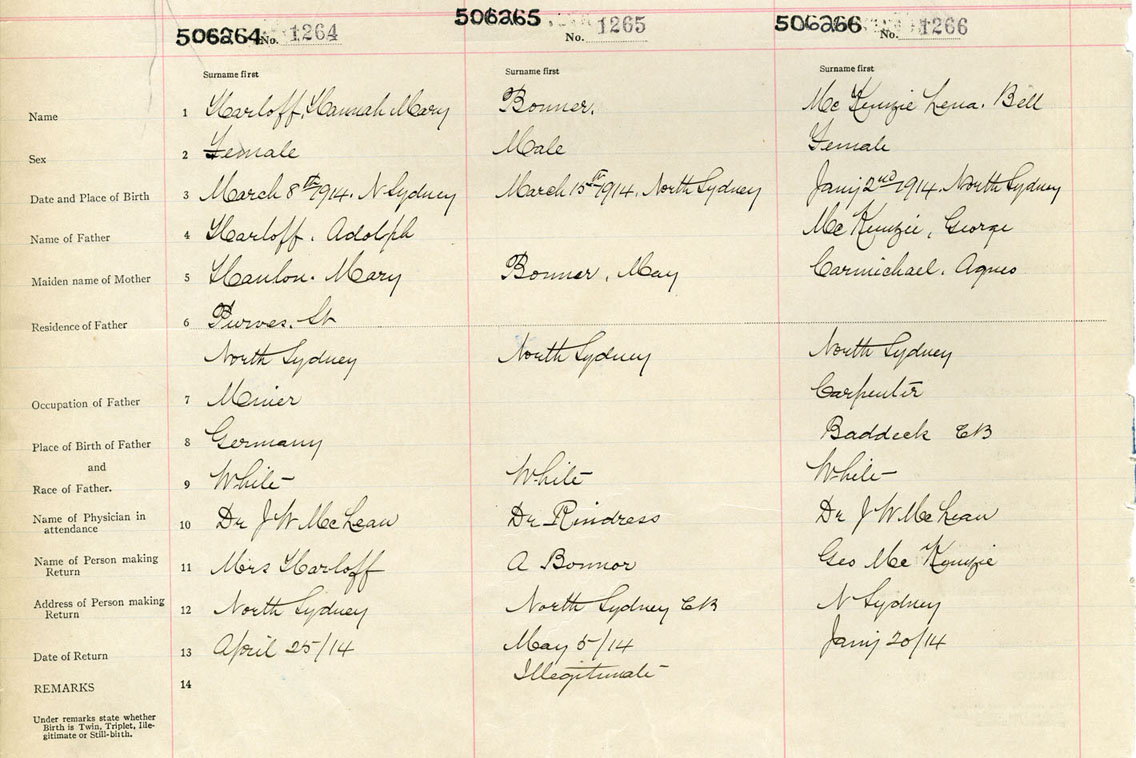 506264 No. 1264 506265 No. 1265 506266 No. 1266
Surname first Surname first Surname first
Name 1 Harloff, Hannah Mary Bonner. Mc Kenzie Lena. Bell
Sex 2 Female Male Female
Date and Place of Birth 3 March 8th 1914. N Sydney March 15th 1914. North Sydney Jany 2nd 1914. North Sydney
Name of Father 4 Harloff. Adolph Mc Kenzie, George
Maiden name of Mother 5 Hanlon. Mary Bonner, May Carmichael. Agnes
Residence of Father 6 Purves. St
North Sydney North Sydney North Sydney
Occupation of Father 7 Miner Carpenter
Place of Birth of Father 8 Germany Baddeck CB
and
Race of Father. 9 White White White
Name of Physician in attendance 10 Dr J W McLean Dr Rindress Dr J W McLean
Name of Person making Return 11 Mrs Harloff A Bonnor Geo Mc Kenzie
Address of Person making Return 12 North Sydney North Sydney CB N Sydney
Date of Return 13 April 25/14 May 5/14 Jany 20/14
REMARKS 14 Illegitimate
Under remarks state whether
Birth is Twin, Triplet, Ille-
gitimate or Still-birth.